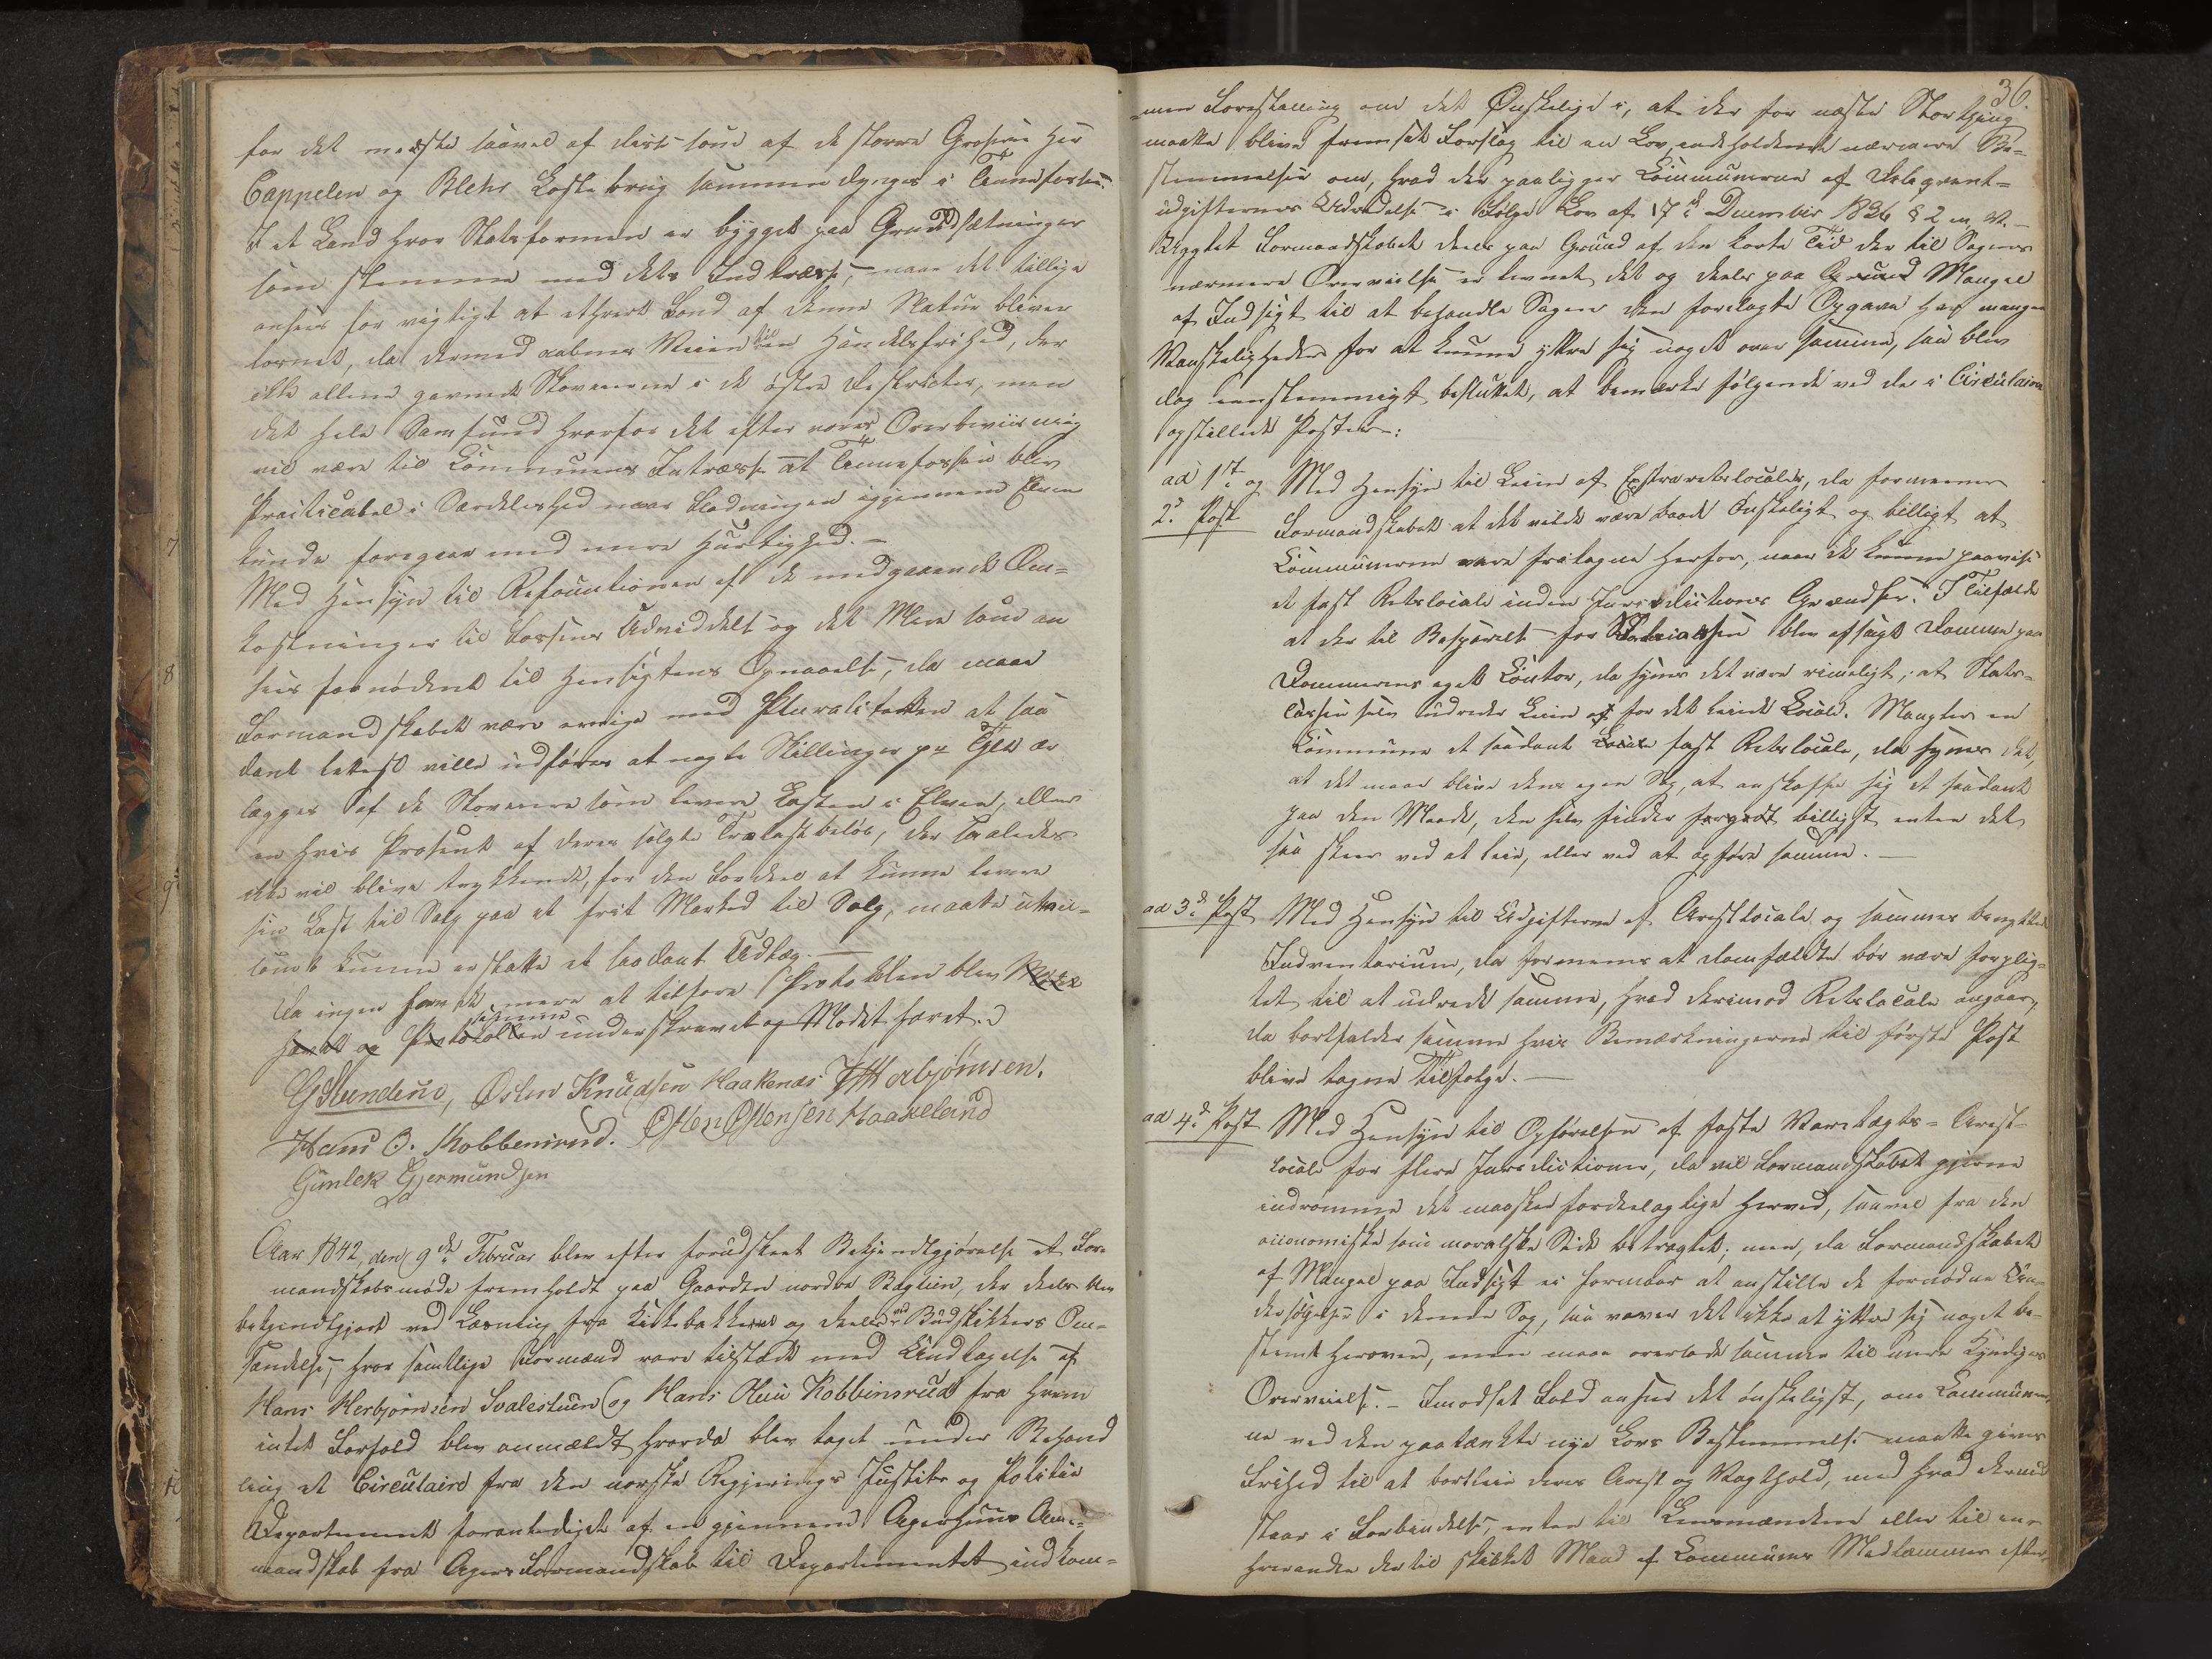 for det meeste saavel af dist som af de storre Grosserer Hr
Cappelen og Blehr Lastebrug sammen dynges i Tinnefossen.
I et Land hvor Statsformen er bygget paa Grundsætninger
som stemme med dets Indtræsse, maae det tillige
ansees for vigtigt at ethvert Baand af denne Natur bliver
løsnet, da dermed aabnes Veien til en Handelsfrihed, der
ikke allene gavner Skoveierne i de østre Destricter, men
det hele Samfund hvorfor det efter vores Overbeviisning
vil være til Communens Intræsse at Tinnefossen blev
Practicabel i Særdeleshed naar Flødningen igjennem Elven
kunde foregaae med mere Hurtighed. –
Med Hensyn til Refountionen af de medgaaende Om=
kostninger til Fossens Udviddelse og det Mere som an
sees fornødent til Hensigtens Opnaaelse, da maae
Formandskabet være eenige med Pluraliteten at saa
dant lettest ville udføres at nogle Skillinger pr Tylt er
lægges af de Skoveiere som levere Lasten i Elven, eller
en hvis Prosent af deres solgte Trælastbeløb, der saaledes
ikke vil blive trykkende, for den Fordeel at kunne levere
sin Last til Salg paa et frit Marked til Salg, maatte uten=
somt kunne erstatte et saadant Udlæg. –
Da ingen havde mere at tilføre Protokollen blev Mødet
hævet og Protokollen samme underskrevet og Mødet hævet.
G Slunden, Osten Knudsen Haakenæs H Herbjörnsen.
Hans O. Kobbenrud. Osten Ostensen Haaveland
Gunlek Gjermundsen
Aar 1842, den 9de Februar blev efter forudskeet Bekjendtgjørelse et For=
mandskabsmøde fremholdt paa Gaarden nordre Bagtien, der deels var
bekjendtgjort ved Læsning fra Kirkebakken og deels ved Budstikkers Om=
sendelse, hvor samtlige Formænd vare tilstæde med Undtagelse af
Hans Herbjørnsen Svalestuen og Hans Olsen Kobbinsrud fra hvem
intet Forfald blev anmældt hvorda blev taget under Behand
ling et Circulaire fra den norske Regjerings Justits og Politie
Departement foranlediget af en gjennem Agershuus Amt=
mandskab fra Agers Formandskab til Departementet indkom=
36.
=men Forestalling om det Ønskelige i, at der for næste Storthing
maatte blive fremsat Forslag til en Lov, indeholdende nærmere Be=
stemmelser om, hvad der paaligger Communerne af Delegvent=
udgifternes Udredelse i Følge Lov af 17de December 1836 § 2 m. V. –
Uagtet Formandskabet deels paa Grund af den korte Tid der til Sagens
nærmere Overveielse er levnet det og deels paa Grund Mangel
af Indsigt til at behandle Sagen den forelagte Opgave har mange
Vanskeligheder for at kunne yttre sig noget over samme, saa blev
dog eenstemmigt besluttet, at bemærke følgende ved de i Circulairet
opstillede Poster:
ad 1te og
2de Post
Med Hensyn til Leien af Extraretslocaler, da formener
Formandskabet at det vilde være baade ønskeligt og billigt at
Communerne vare fritagne herfor, naar de kunne paavise
et fast Retslocale inden Jurisdictionens Grændser. I Tilfælde
at der til Besparelse for blev afsagt Domme paa
Dommerens eget Contor, da synes det være rimeligt, at Stats=
cassen selv udreder Leien af for det leiede Locale. Mangler en
Commune et saadant Locale fast Retslocale, da synes det,
at det maae blive dens egen Sag, at anskaffe sig et saadant
paa den Maade, den selv finder forgodt billigst, enten det
saa skeer ved at leie, eller ved at opføre samme. –
ad 3de Post
Med Hensyn til Udgifterne af Arestlocale og sammes benyttede
Indventarium, da formenes at Domfældte bør være forplig=
tet til at udrede samme, hvad derimod Retslocale angaar,
da bortfalder samme hvis Bemærkningerne til første Post
blive tagne Tilfølge. –
ad 4de Post
Med Hensyn til Opførelsen af faste Varetægts=Arest=
locale for flere Jurisdictioner, da vil Formandskabet gjerne
indrømme det maaskee fordeelagtige herved, saavel fra den
oiconomiske som moralske Side betragtet; men, da Formandskabet
af Mangel paa Indsigt ei formaar at anstille de fornødne Un=
dersøgelser i denne Sag, saa vover det ikke at yttre sig noget be=
stemt herover, men maae overlade samme til mere Kyndiges
Overveielse. – Imodsat Fald ansees det ønskeligst, om Communer=
ne ved den paatænkte nye Lovs Bestemmelse maatte gives
Frihed til at bortleie deres Arest og Vagthold, med hvad dermed
staar i Forbindelse, enten til Lensmændene eller til en
hver anden dertil skikket Mand af Communens Medlemmer efter